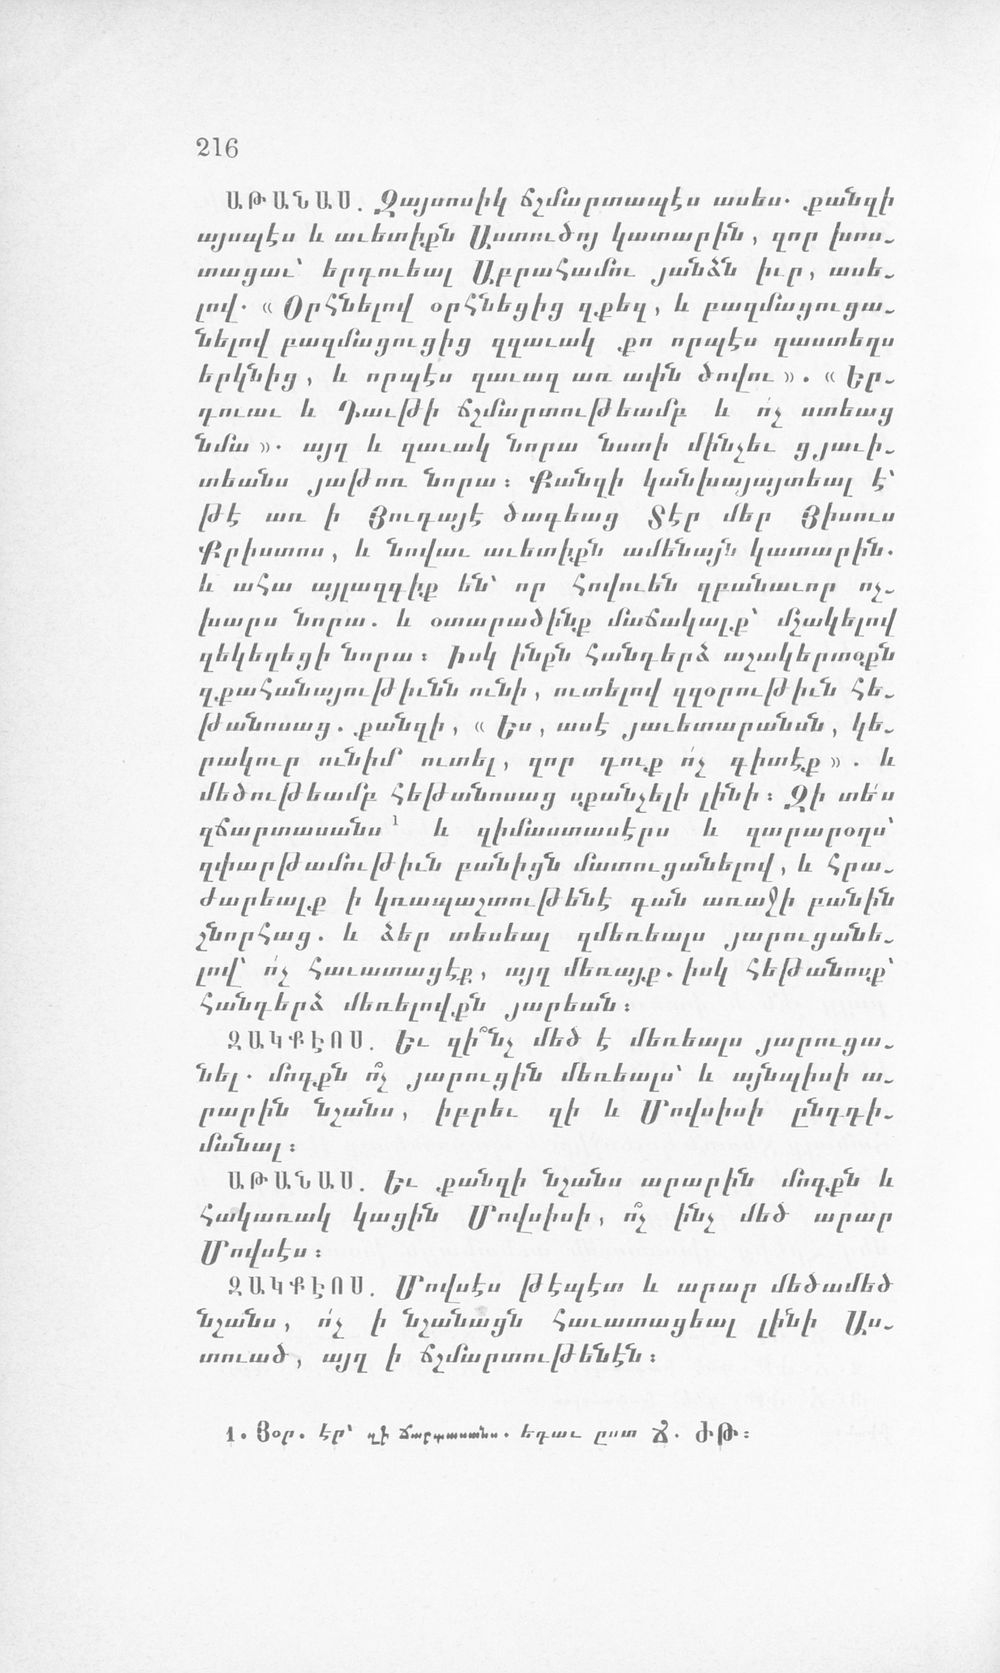 216
ԱԹԱՆԱՍ. Զայսոսիկ ճշմարտապէս ասես. քանզի
այսպէս և աւետիքն Աստուծոյ կատարին, զոր խոս-
տացաւ՝ երդուեալ Աբրահամու յանձն իւր, ասե-
լով. « Օրհնելով օրհնեցից զքեզ, և բազմացուցա-
նելով բազմացուցից զզաւակ քո որպէս զաստեղս
երկնից, և որպէս զաւազ առ ափն ծովու ». « Եր-
դուաւ և Դաւթի ճշմարտութեամբ և ո՛չ ստեաց
նմա ». այղ և զաւակ նորա նստի մինչեւ ցյաւի-
տեանս յաթոռ նորա: Քանզի կանխայայտեալ է՝
թէ առ ի Յուդայէ ծագեաց Տէր մեր Յիսուս
Քրիստոս, և նովաւ աւետիքն ամենայն կատարին.
և ահա այլազգիք են՝ որ հովուեն զբանաւոր ոչ-
խարս նորա. և օտարածինք մաճակալք՝ մշակելով
զեկեղեցի նորա: Իսկ ինքն հանդերձ աշակերտօքն
զքահանայութիւնն ունի, ուտելով զզօրութիւն հե-
թանոսաց. քանզի, « Ես, ասէ յաւետարանսն, կե-
րակուր ունիմ ուտել, զոր դուք ո՛չ գիտէք ». և
մեծութեամբ հեթանոսաց սքանչելի լինի: Զի տե՛ս
զճարտասանս 1 և զիմաստասէրս և զարարօղս՝
զփարթամութիւն բանիցն մատուցանելով, և հրա-
ժարեալք ի կռապաշտութենէ գան առաջի բանին
շնորհաց. և ձեր տեսեալ զմեռեալս յարուցանե-
լով՝ ո՛չ հաւատացէք, այղ մեռայք. իսկ հեթանոսք՝
հանդերձ մեռելովքն յարեան:
ԶԱԿՔԷՈՍ. Եւ զի՞նչ մեծ է մեռեալս յարուցա-
նել. մոգքն ո՞չ յարուցին մեռեալս՝ և այնպիսի ա-
րարին նշանս, իբրեւ զի և Մովսիսի ընդդի-
մանալ:
ԱԹԱՆԱՍ. Եւ քանզի նշանս արարին մոգքն և
հակառակ կացին Մովսիսի, ո՞չ ինչ մեծ արար
Մովսէս:
ԶԱԿՔԷՈՍ. Մովսէս թէպէտ և արար մեծամեծ
նշանս, ո՛չ ի նշանացն հաւատացեալ լինի Աս-
տուած, այղ ի ճշմարտութենէն:
1. Յօր. էր՝ զի ճարտասանս. եդաւ ըստ Ճ. ԺԹ: